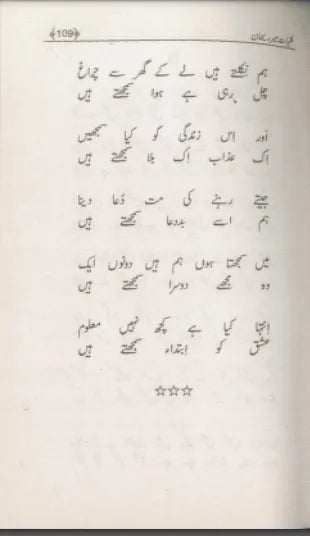 کلیاتِ میر۔ ریحان ﴿109﴾
ہم نکلتے ہیں لے کے گھر سے چراغ
چل رہی ہے ہوا سمجھتے ہیں
اور اِس زندگی کو کیا سمجھیں
اِک عذاب اِک بلا سمجھتے ہیں
جیتے رہنے کی مت دُعا دینا
ہم اسے بددعا سمجھتے ہیں
میں سمجھتا ہوں ہم ہیں دونوں ایک
وہ مجھے دوسرا سمجھتے ہیں
اِنتہا کیا ہے کچھ نہیں معلوم
عشق کو اِبتداء سمجھتے ہیں
☆☆☆